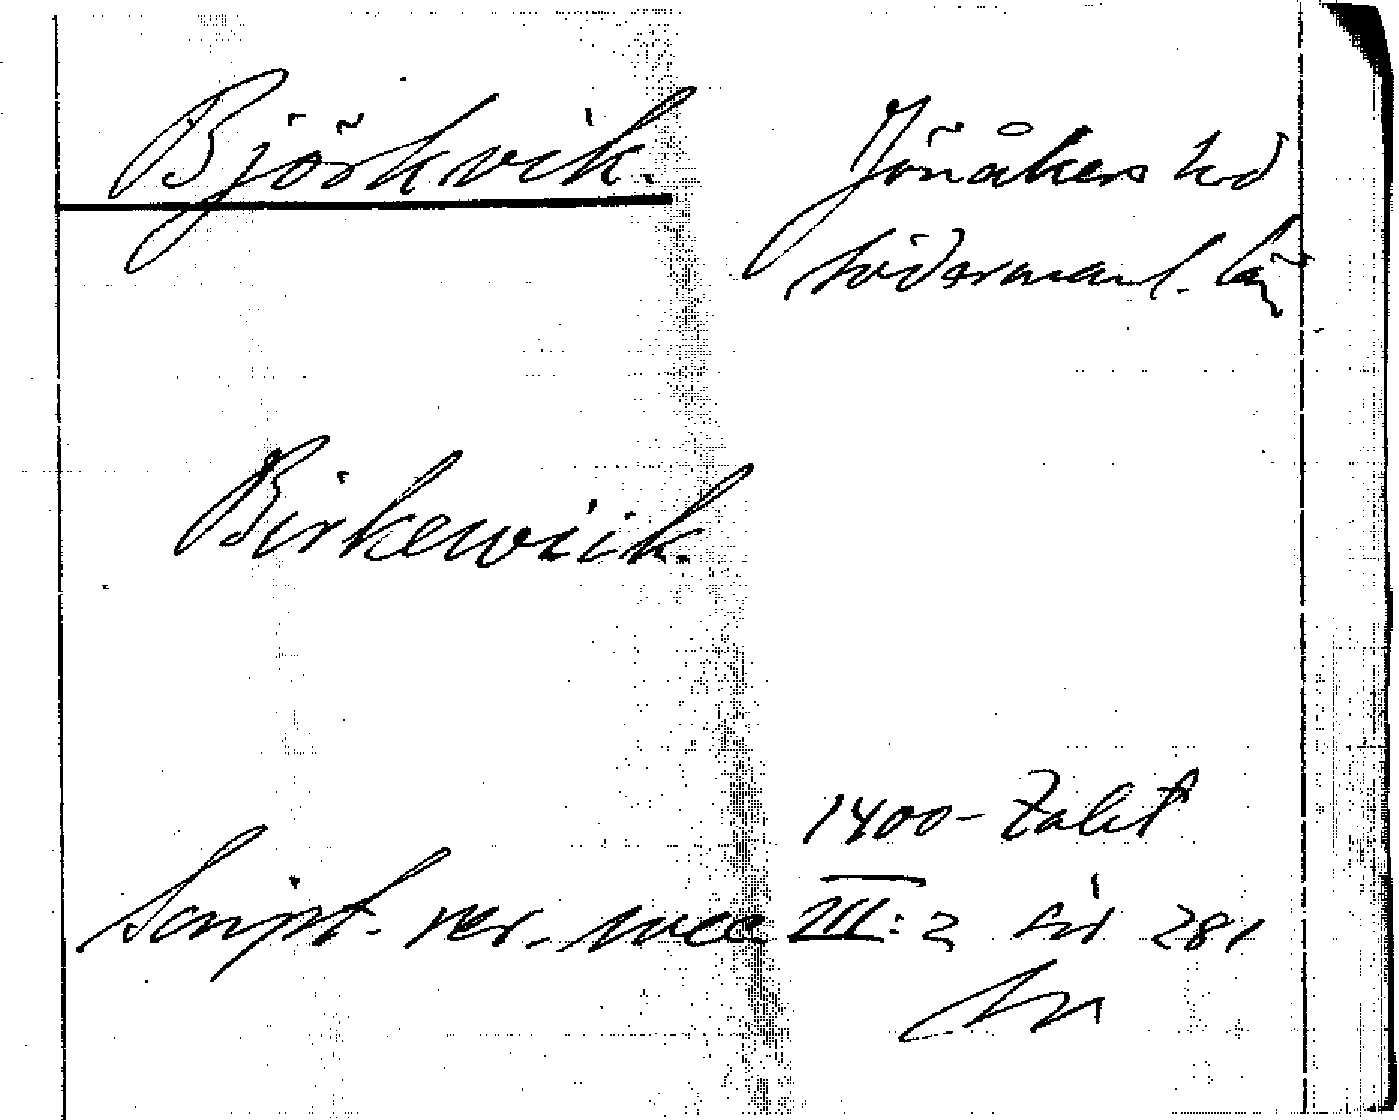 Björkvik. Jönåkers hd
Söderманl. län
Birkewiik.
1400-talet
Script. rer. svec III: 2 sid 281